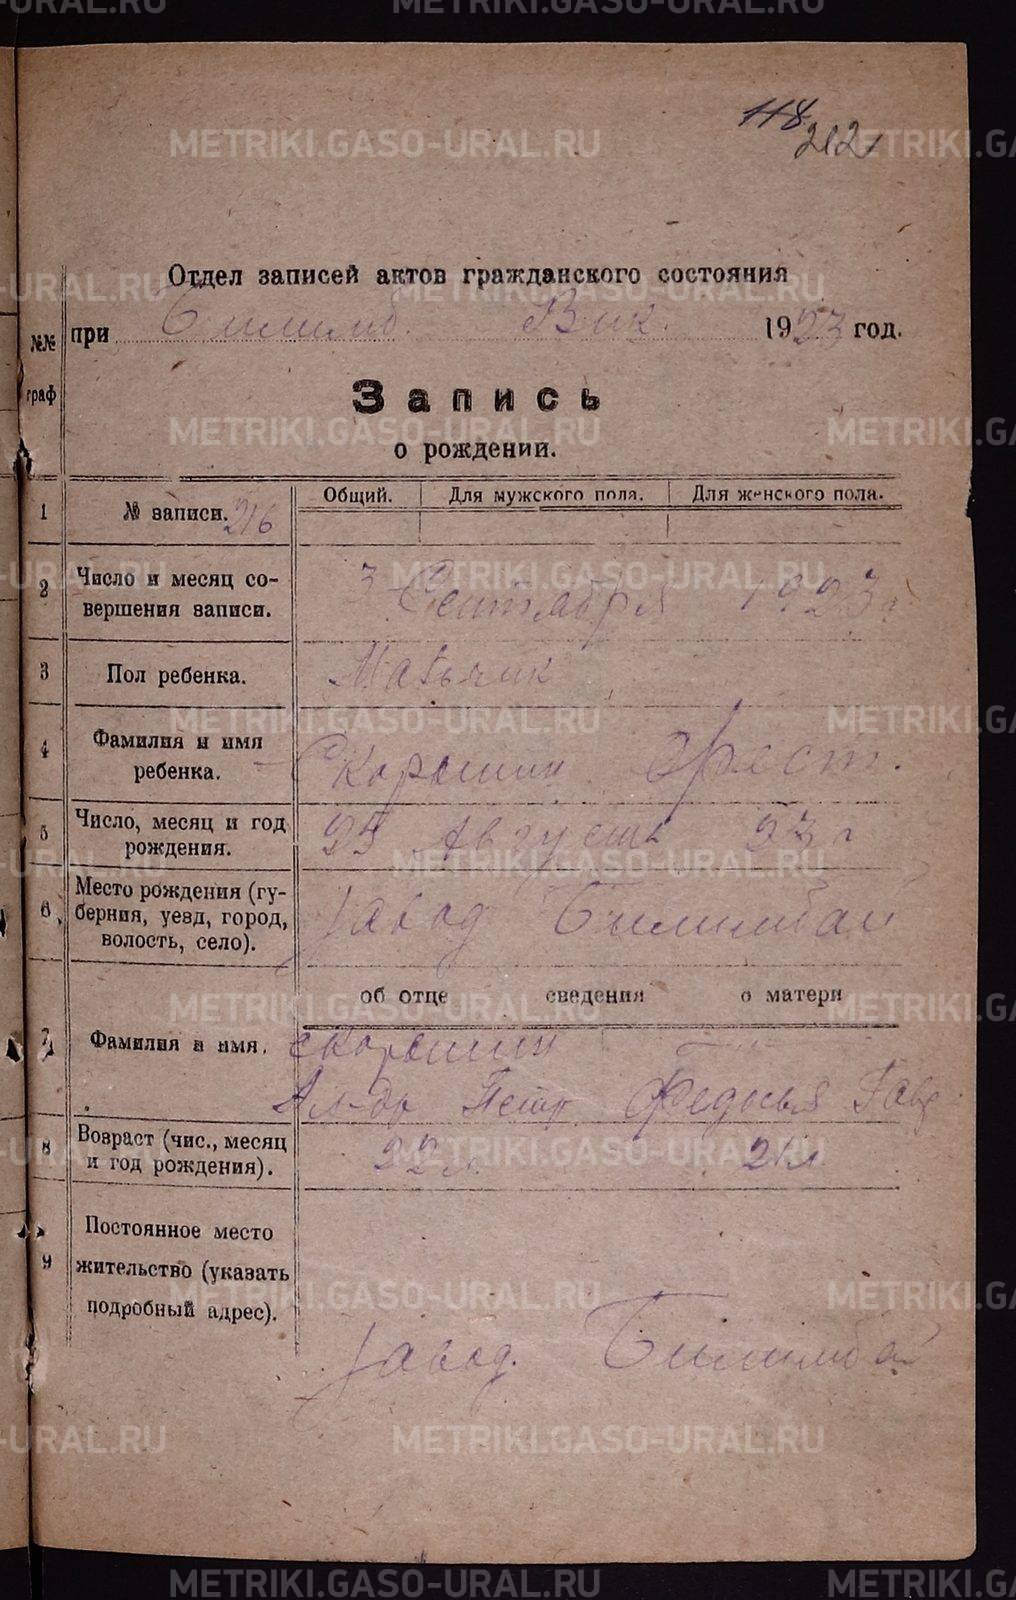 118 2121
Отдел записей актов гражданского состояния
при Билимб. Вик. 1923 год.
№№ граф
Запись
о рождении.
Общий. Для мужского пола. Для женского пола.
1 № записи. 216
2 Число и месяц со-
вершения записи.
3 Сентября 1923 г
3 Пол ребенка. Мальчик
4 Фамилия и имя
ребенка.
Скорынин Эрест.
5 Число, месяц и год
рождения.
Августа 23 г
6 Место рождения (гу-
берния, уезд, город,
волость, село).
завод Билимбай
об отце сведения о матери
7 Фамилия и имя.
Скорынин
Ал-др Петр Федосья Гавр
8 Возраст (чис., месяц
и год рождения).
22 л 21 л
9 Постоянное место
жительство (указать
подробный адрес).
завод. Билимба
METRIKI.GASO-URAL.RU